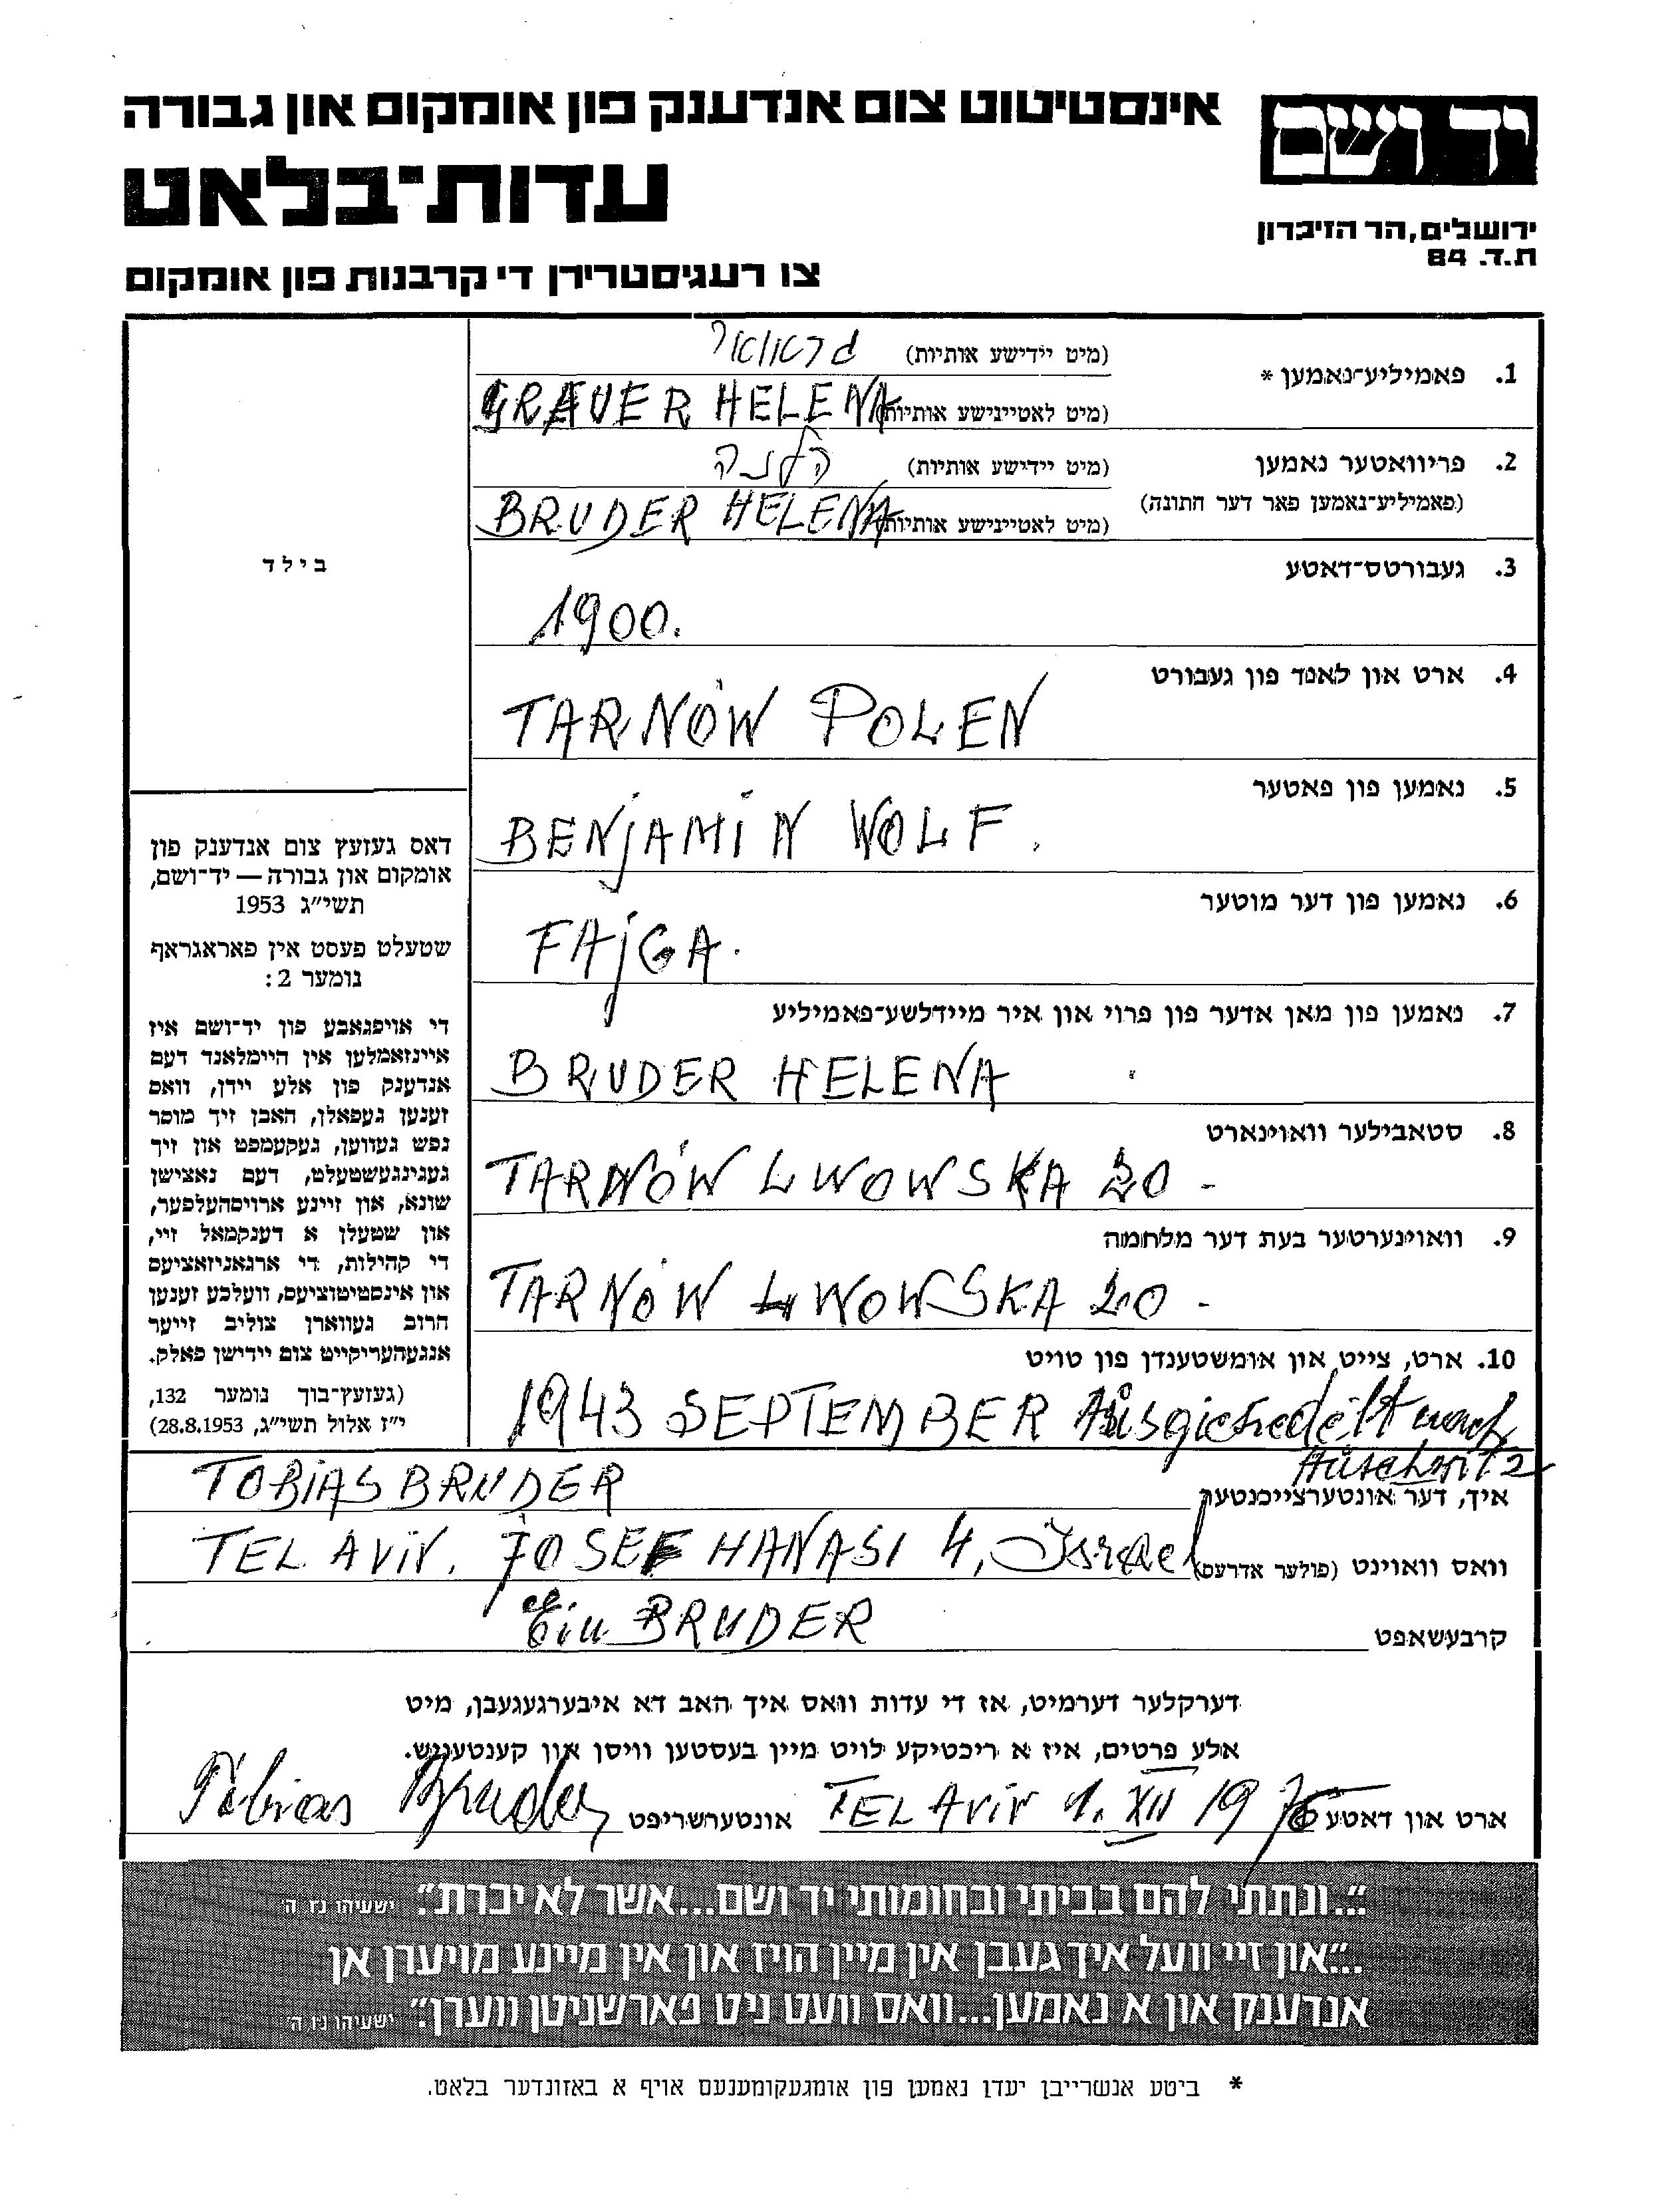 אינסטיטוט צום אנדענק פון אומקום און גבורה
עדות־בלאט
צו רעגיסטרירן די קרבנות פון אומקום
יד ושם
ירושלים, הר הזיכרון
ת.ד. 84
1. פאמיליע־נאמען *
(מיט יידישע אותיות)
(מיט לאטיינישע אותיות) GRAUER HELENA
2. פריוואטער נאמען
(פאמיליע־נאמען פאר דער חתונה)
(מיט יידישע אותיות) הלנה
(מיט לאטיינישע אותיות) BRUDER HELENA
3. געבורטס־דאטע
1900.
4. ארט און לאנד פון געבורט
TARNÓW POLEN
5. נאמען פון פאטער
BENJAMIN WOLF.
6. נאמען פון דער מוטער
FAJGA.
7. נאמען פון מאן אדער פון פרוי און איר מיידלשע־פאמיליע
BRUDER HELENA
8. סטאבילער וואוינארט
TARNÓW LWOWSKA 20 -
9. וואוינערטער בעת דער מלחמה
TARNÓW LWOWSKA 20 -
10. ארט, צייט און אומשטענדן פון טויט
1943 SEPTEMBER Ausgiesiedelt nach
Auschwitz
בילד
דאס געזעץ צום אנדענק פון
אומקום און גבורה — יד־ושם,
תשי״ג 1953
שטעלט פעסט אין פאראגראף
נומער 2:
די אויפגאבע פון יד־ושם איז
איינזאמלען אין היימלאנד דעם
אנדענק פון אלע יידן, וואס
זענען געפאלן, האבן זיך מוסר
נפש געווען, געקעמפט און זיך
געגינגעשטעלט, דעם נאצישן
שונא, און זיינע ארויסהעלפער,
און שטעלן א דענקמאל זיי,
די קהילות, די ארגאניזאציעס
און אינסטיטוציעס, וועלכע זענען
חרוב געווארן צוליב זייער
אנגעהעריקייט צום יידישן פאלק.
(געזעץ־בוך נומער 132,
י״ז אלול תשי״ג, 28.8.1953)
איך, דער אונטערצייכנטער TOBIAS BRUDER
וואס וואוינט (פולער אדרעס) TEL AVIV. JOSEF HANASI 4, Israel
קרבעשאפט Ein BRUDER
דערקלער דערמיט, אז די עדות וואס איך האב דא איבערגעגעבן, מיט
אלע פרטים, איז א ריכטיקע לויט מיין בעסטען וויסן און קענטעניש.
ארט און דאטע TEL AVIV 1. XII 1976 אונטערשריפט Tobias Bruder
"...ונתתי להם בביתי ובחומותי יד ושם...אשר לא יכרת". ישעיהו נו ה'
..."און זיי וועל איך געבן אין מיין הויז און אין מיינע מויערן אן
אנדענק און א נאמען...וואס וועט ניט פארשניטן ווערן". ישעיהו נו ה'
* ביטע אנשרייבן יעדן נאמען פון אומגעקומענעם אויף א באזונדער בלאט.